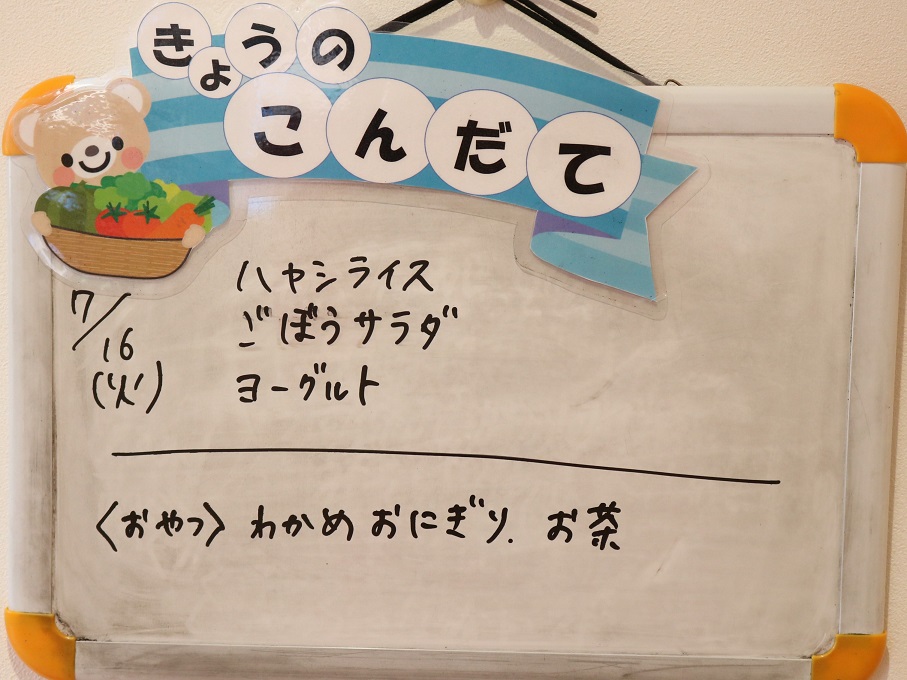 きょうの
こんだて
7/16
(火)
ハヤシライス
ごぼうサラダ
ヨーグルト
〈おやつ〉 わかめおにぎり. お茶